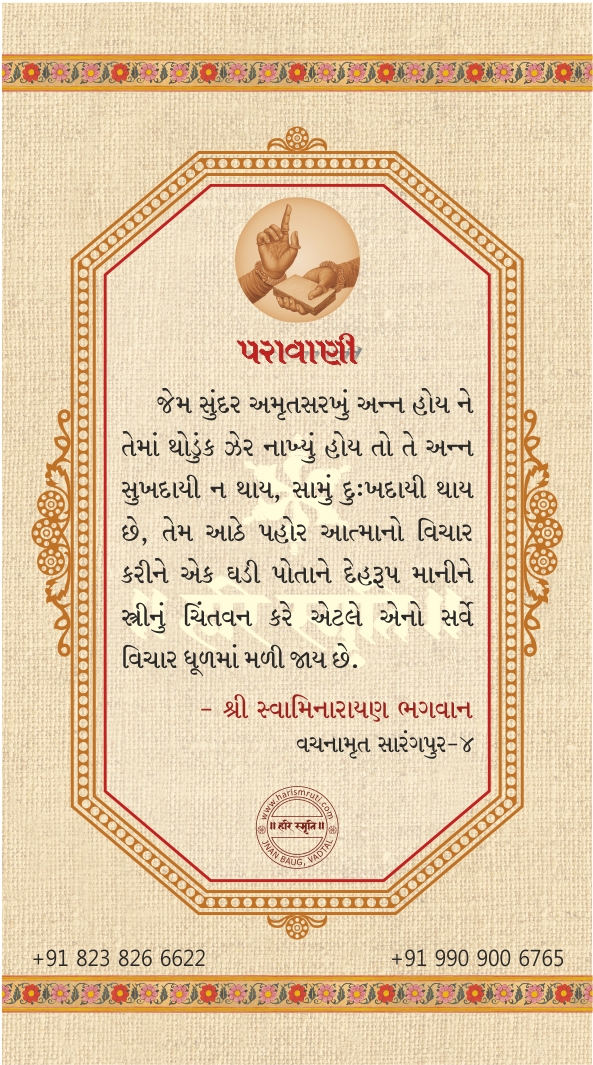 પરાવાણી
જેમ સુંદર અમૃતસરખું અન્ન હોય ને
તેમાં થોડુંક ઝેર નાખ્યું હોય તો તે અન્ન
સુખદાયી ન થાય, સામું દુઃખદાયી થાય
છે, તેમ આઠે પહોર આત્માનો વિચાર
કરીને એક ઘડી પોતાને દેહરૂપ માનીને
સ્ત્રીનું ચિંતવન કરે એટલે એનો સર્વે
વિચાર ધૂળમાં મળી જાય છે.
॥ हरि स्मृति ॥
- શ્રી સ્વામિનારાયણ ભગવાન
વચનામૃત સારંગપુર-૪
www.harismruti.com
॥ हरि स्मृति ॥
JNAN BAUG, VADTAL
+91 823 826 6622
+91 990 900 6765